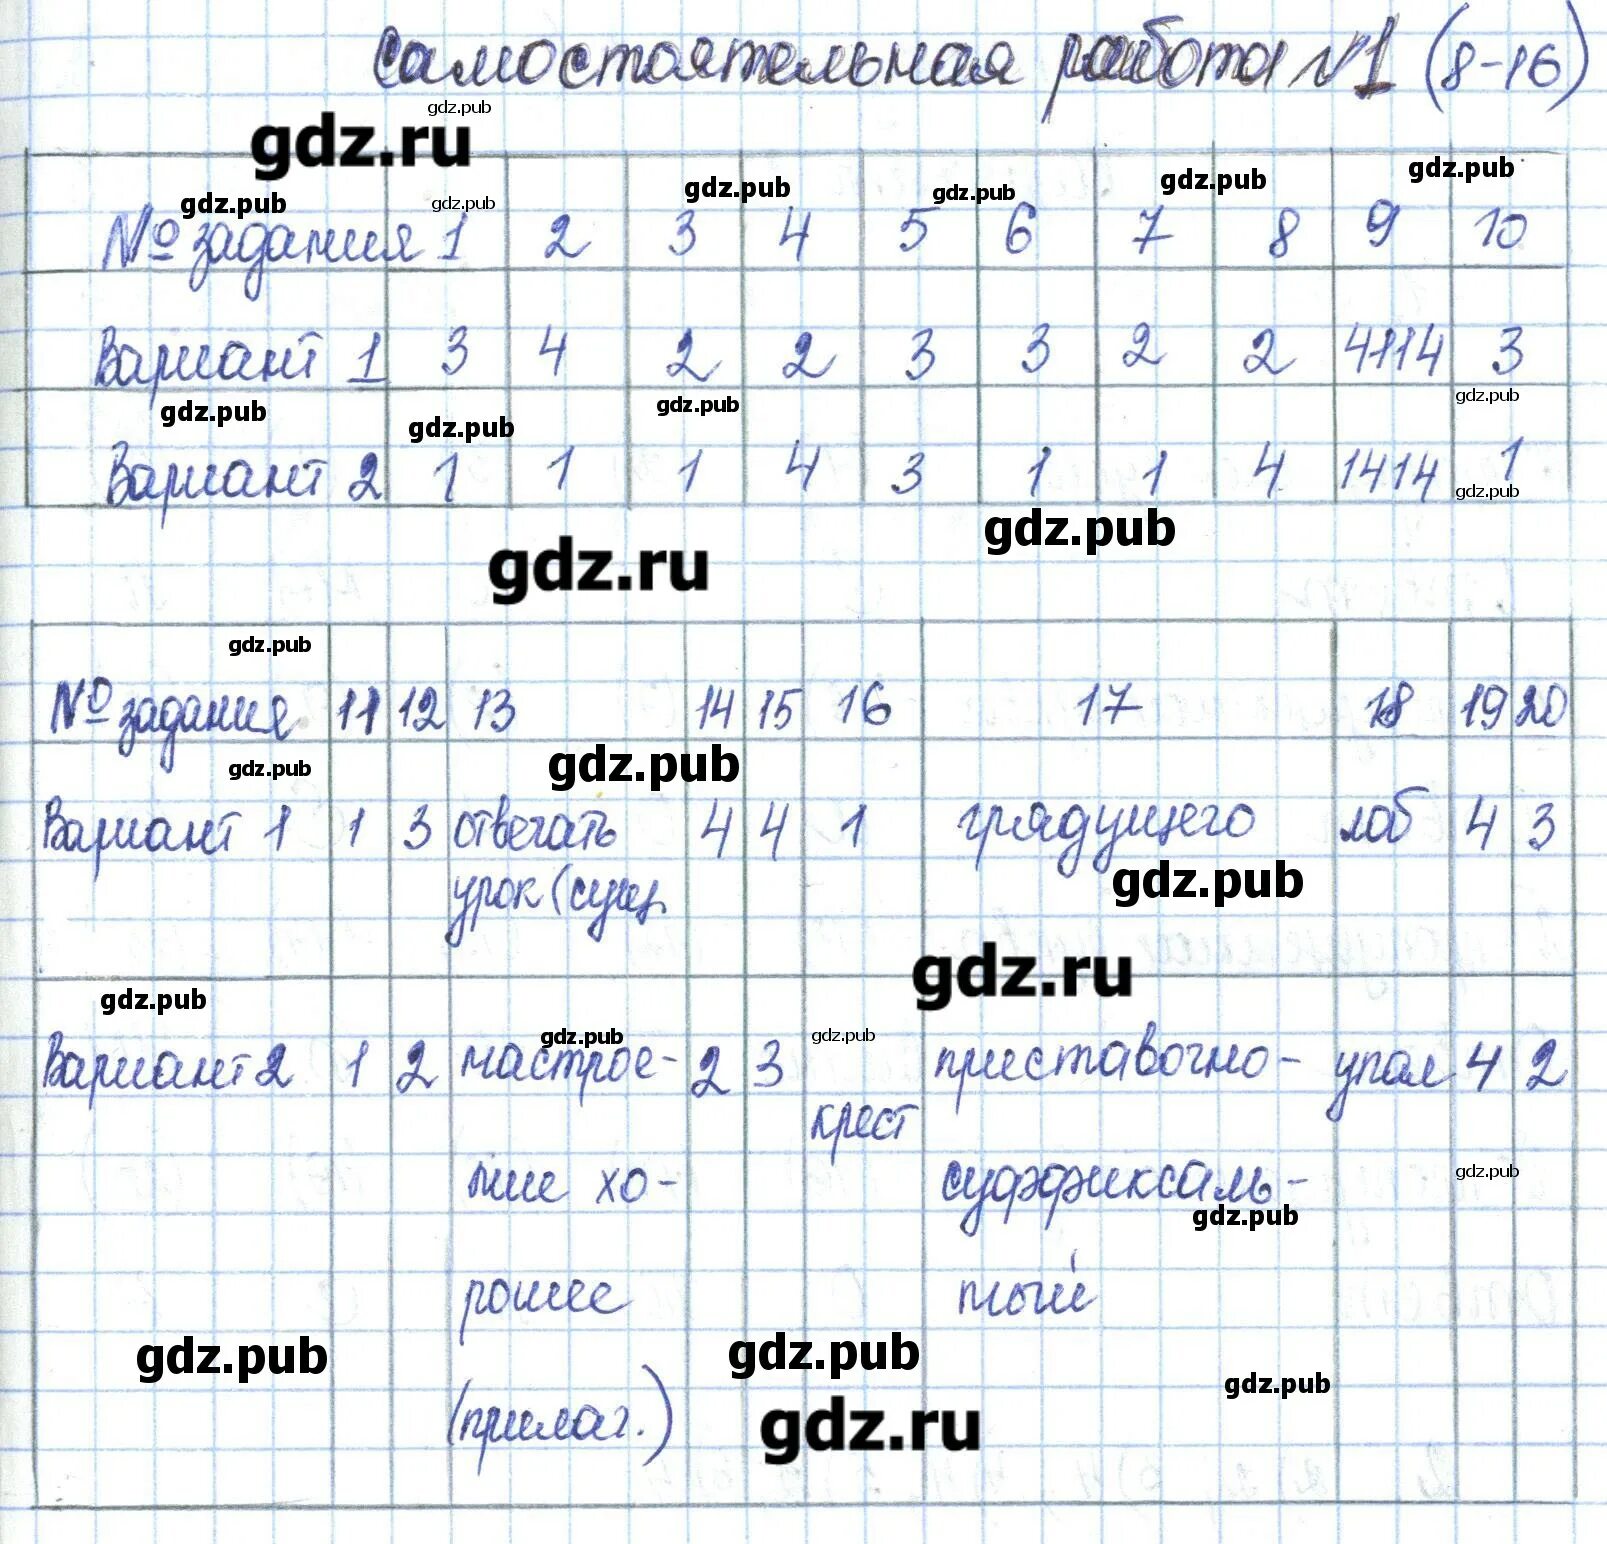 самостоятельная работа №1 (8-16)
gdz.pub
gdz.ru
gdz.pub gdz.pub gdz.pub gdz.pub gdz.pub gdz.pub
№ задания 1 2 3 4 5 6 7 8 9 10
Вариант 1 3 4 2 2 3 3 2 2 4114 3
gdz.pub gdz.pub gdz.pub gdz.pub
Вариант 2 1 1 1 4 3 1 1 4 1414 1
gdz.pub
gdz.pub
gdz.ru
gdz.pub
№ задания 11 12 13 14 15 16 17 18 19 20
gdz.pub gdz.pub
Вариант 1 1 3 отвечать 4 4 1 грядущего лоб 4 3
урок (сущ. gdz.pub
gdz.ru
gdz.pub gdz.pub gdz.pub
Вариант 2 1 2 настрое- 2 3 приставочно- упал 4 2
крест
ние хо- суффиксаль- gdz.pub
gdz.pub
рошее ный
gdz.pub gdz.pub gdz.pub
(прилаг.) gdz.ru